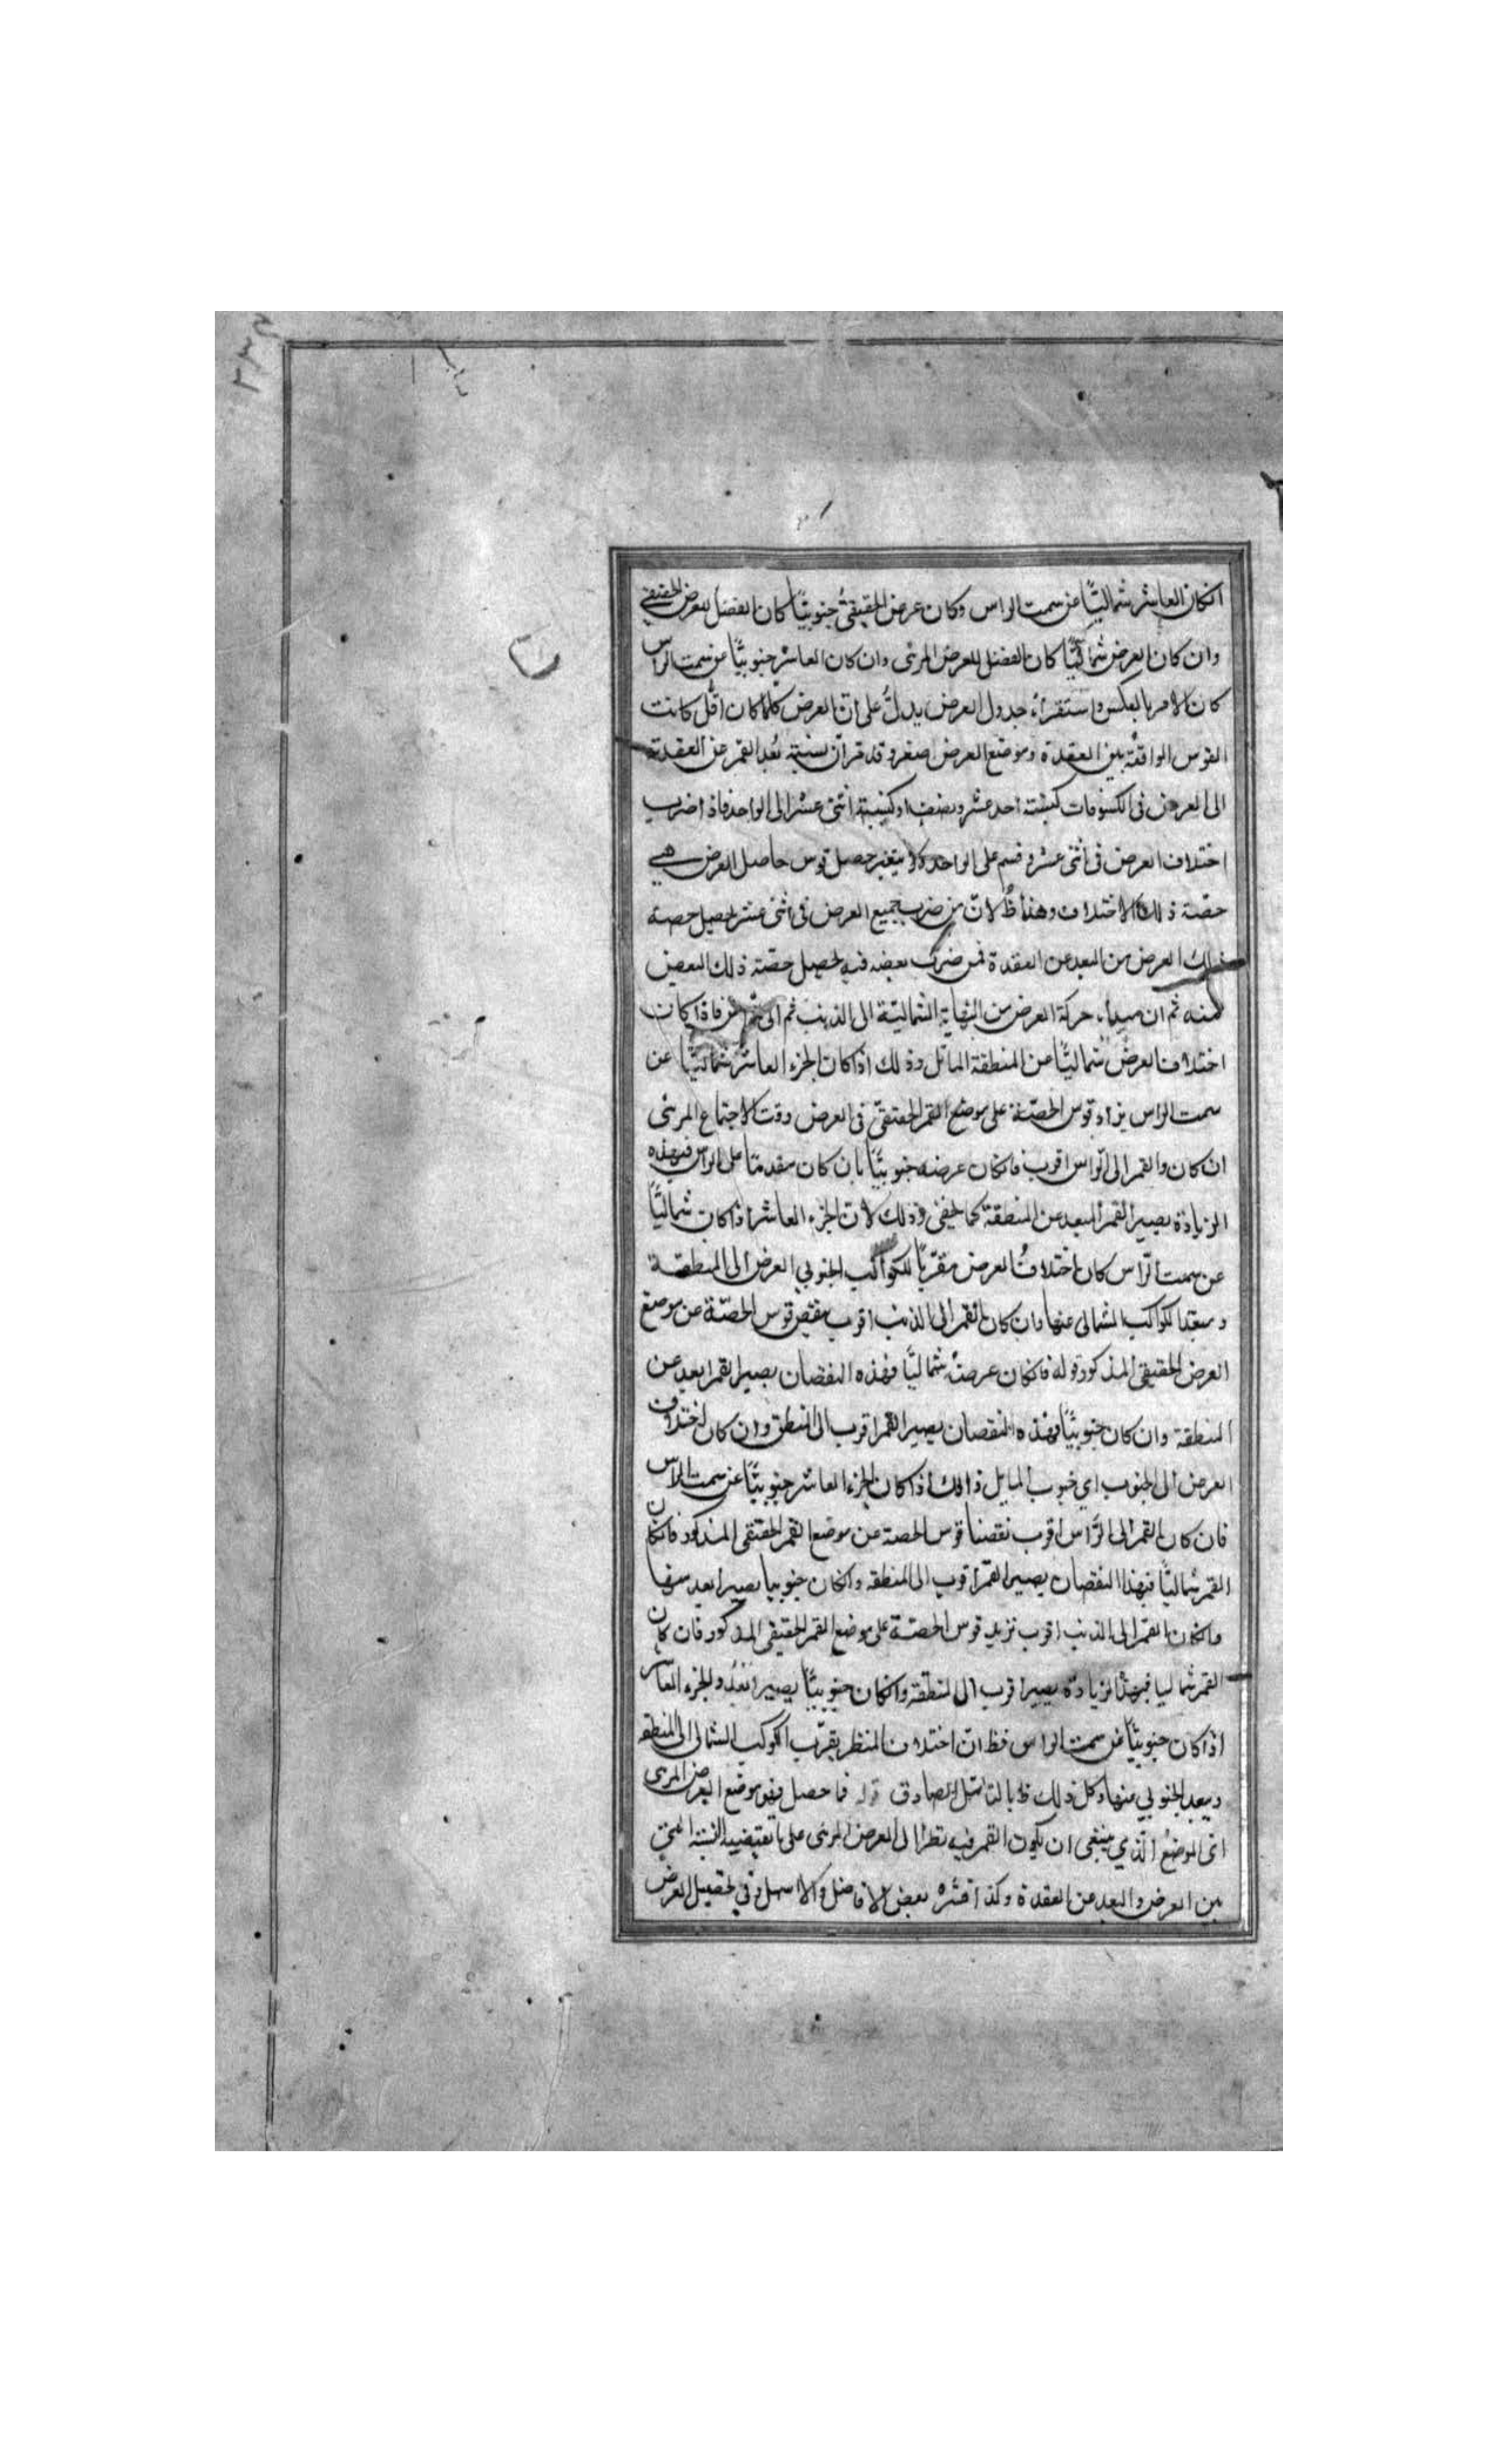 ٢٣٤
انكان العاشر شماليًّا عن سمت الراس وكان عرض الحقيقىُ جنوبيًّا كان الفضل للعرض الحقيقي
وان كان العرض شماليًّا كان الفضل للعرض المرئى وان كان العاشر جنوبيًّا عن سمت الراس
كان الامر بالعكس واستقراء جدول العرض يدلُّ على انّ العرض كلما كان اقلّ كانت
القوس الواقعة بين العقدة وموضع العرض اصغر وقد قرّ ان نسبة بُعد القمر عن العقدة
الى العرض فى الكسوفات كنسبة احد عشر ونصف او كنسبة اثنى عشر الى الواحد فاذا ضرب
اختلاف العرض فى اثنى عشر وقسم على الواحد ولا يتغير حصل قوس حاصل العرض هي
حصّة ذلك الاختلاف وهذا ظ لانّ من ضرب جميع العرض فى اثنى عشر يحصل حصة
ذلك العرض من البعد عن العقدة فمن ضرب بعضه فيه يحصل حصّة ذلك البعض
منه ثم ان مبداء حركة العرض من النهاية الشماليّة الى الذنب ثم الى فاذا كان
اختلاف العرض شماليًّا عن المنطقة المائل وذلك اذا كان الجزء العاشر شماليًّا عن
سمت الراس يزاد قوس الحصّة على موضع القمر الحقيقىّ فى العرض وقت الاجتماع المرئى
ان كان والقمر الى الرّاس اقرب فانكان عرضه جنوبيًّا بان كان متقدمًا على الراس فبهذه
الزيادة يصير القمر ابعد عن المنطقة كما يخفى وذلك لانّ الجزء العاشر اذا كان شماليًّا
عن سمت الرّاس كان اختلافُ العرض مقرّبًا للكواكب الجنوبي العرض الى المنطقة
ومبعّدا للكواكب الشمالى عنها وان كان القمر الى الذنب اقرب ينقص قوس الحصّة عن موضع
العرض الحقيقى المذكور قوله فانكان عرضهُ شماليًّا فهذه النقصان يصير القمر ابعد عن
المنطقة وان كان جنوبيًّا فهذه النقصان يصير القمر اقرب الى المنطق وان كان اختلاف
العرض الى الجنوب اي جنوب المايل ذلك اذا كان الجزء العاشر جنوبيًّا عن سمت الراس
فان كان القمر الى الرَّاس اقرب نقصنا قوس الحصة من موضع القمر الحقيقى المذكور فانكان
القمر شماليًّا فبهذا النقصان يصير القمر اقرب الى المنطقه وانكان جنوبيا يصير ابعد منها
وانكان القمر الى الذنب اقرب نزيد قوس الحصّة على موضع القمر الحقيقى المذكور فان كان
القمر شماليا فبهذا الزيادة يصير اقرب الى المنطقة وانكان جنوبيًّا يصير ابعد والجزء العاشر
اذا كان جنوبيًّا عن سمت الراس فظ انّ اختلاف المنظر يقرّب الكوكب الشمالى الى المنطقه
ويبعد الجنوبي منها وكل ذلك ظ بالتامّل الصادق قوله فما حصل فهو موضع العرض المرئى
اى الموضع الّذي ينبغى ان يكون القمر فيه نظرا الى العرض المرئى على ما تقتضيه النسبة التي
بين العرض والبعد عن العقدة وكذا فسّره بعض الافاضل والاسهل في تحصيل العرض